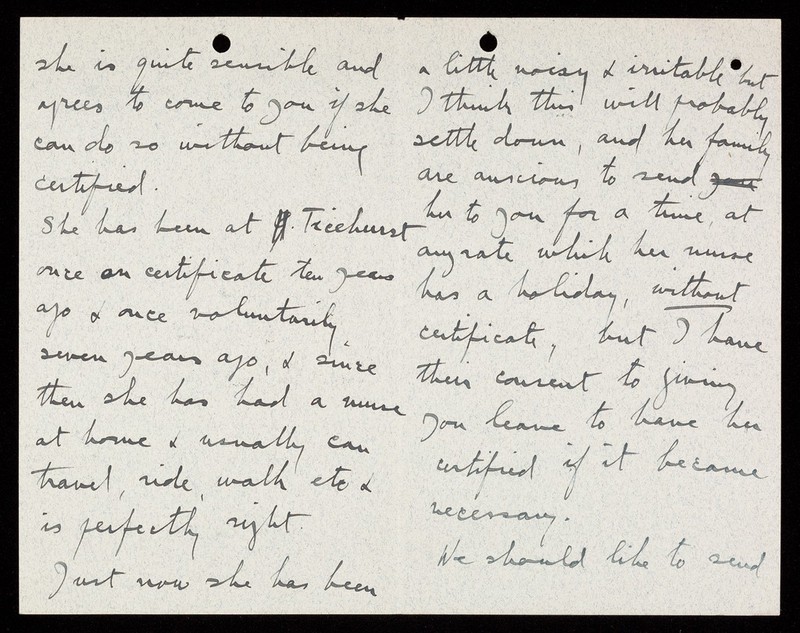 she is quite sensible and
agrees to come to you if she
can do so without being
certified.
She has been at H. Ticehurst
once on certificate ten years
ago & once voluntarily
seven years ago, & since
then she has had a nurse
at home & usually can
travel, ride, walk etc &
is perfectly right.
Just now she has been
a little noisy & irritable but
I think this will probably
settle down, and her family
are anxious to send you
her to you for a time, at
anyrate while her nurse
has a holiday, without
certificate, but I have
their consent to giving
you leave to have her
certified if it became
necessary.
We should like to send